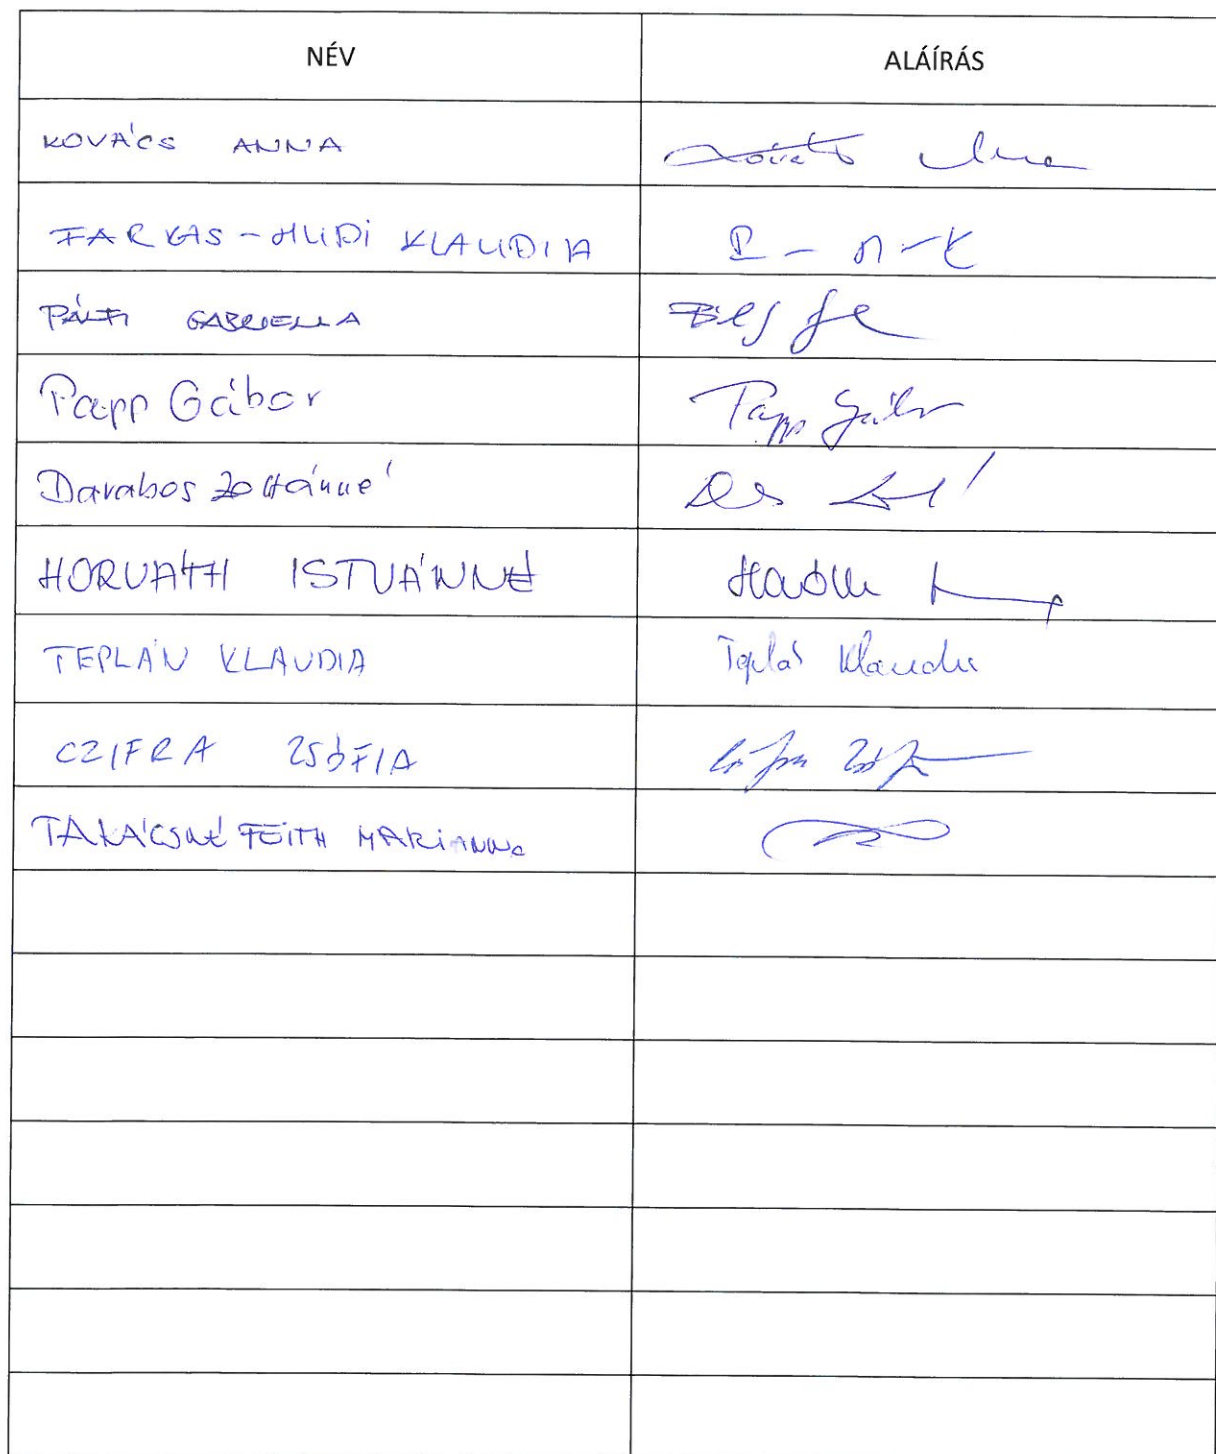 NÉV ALÁÍRÁS
KOVÁCS ANNA
FARKAS-HUDI KLAUDIA
PÁLFI GABRIELLA
Papp Gábor Papp Gábor
Darabos Zoltánné
HORVÁTH ISTVÁNNÉ
TEPLÁN KLAUDIA Teplán Klaudia
CZIFRA ZSÓFIA
TAKÁCSNÉ FEITH MARIANNA